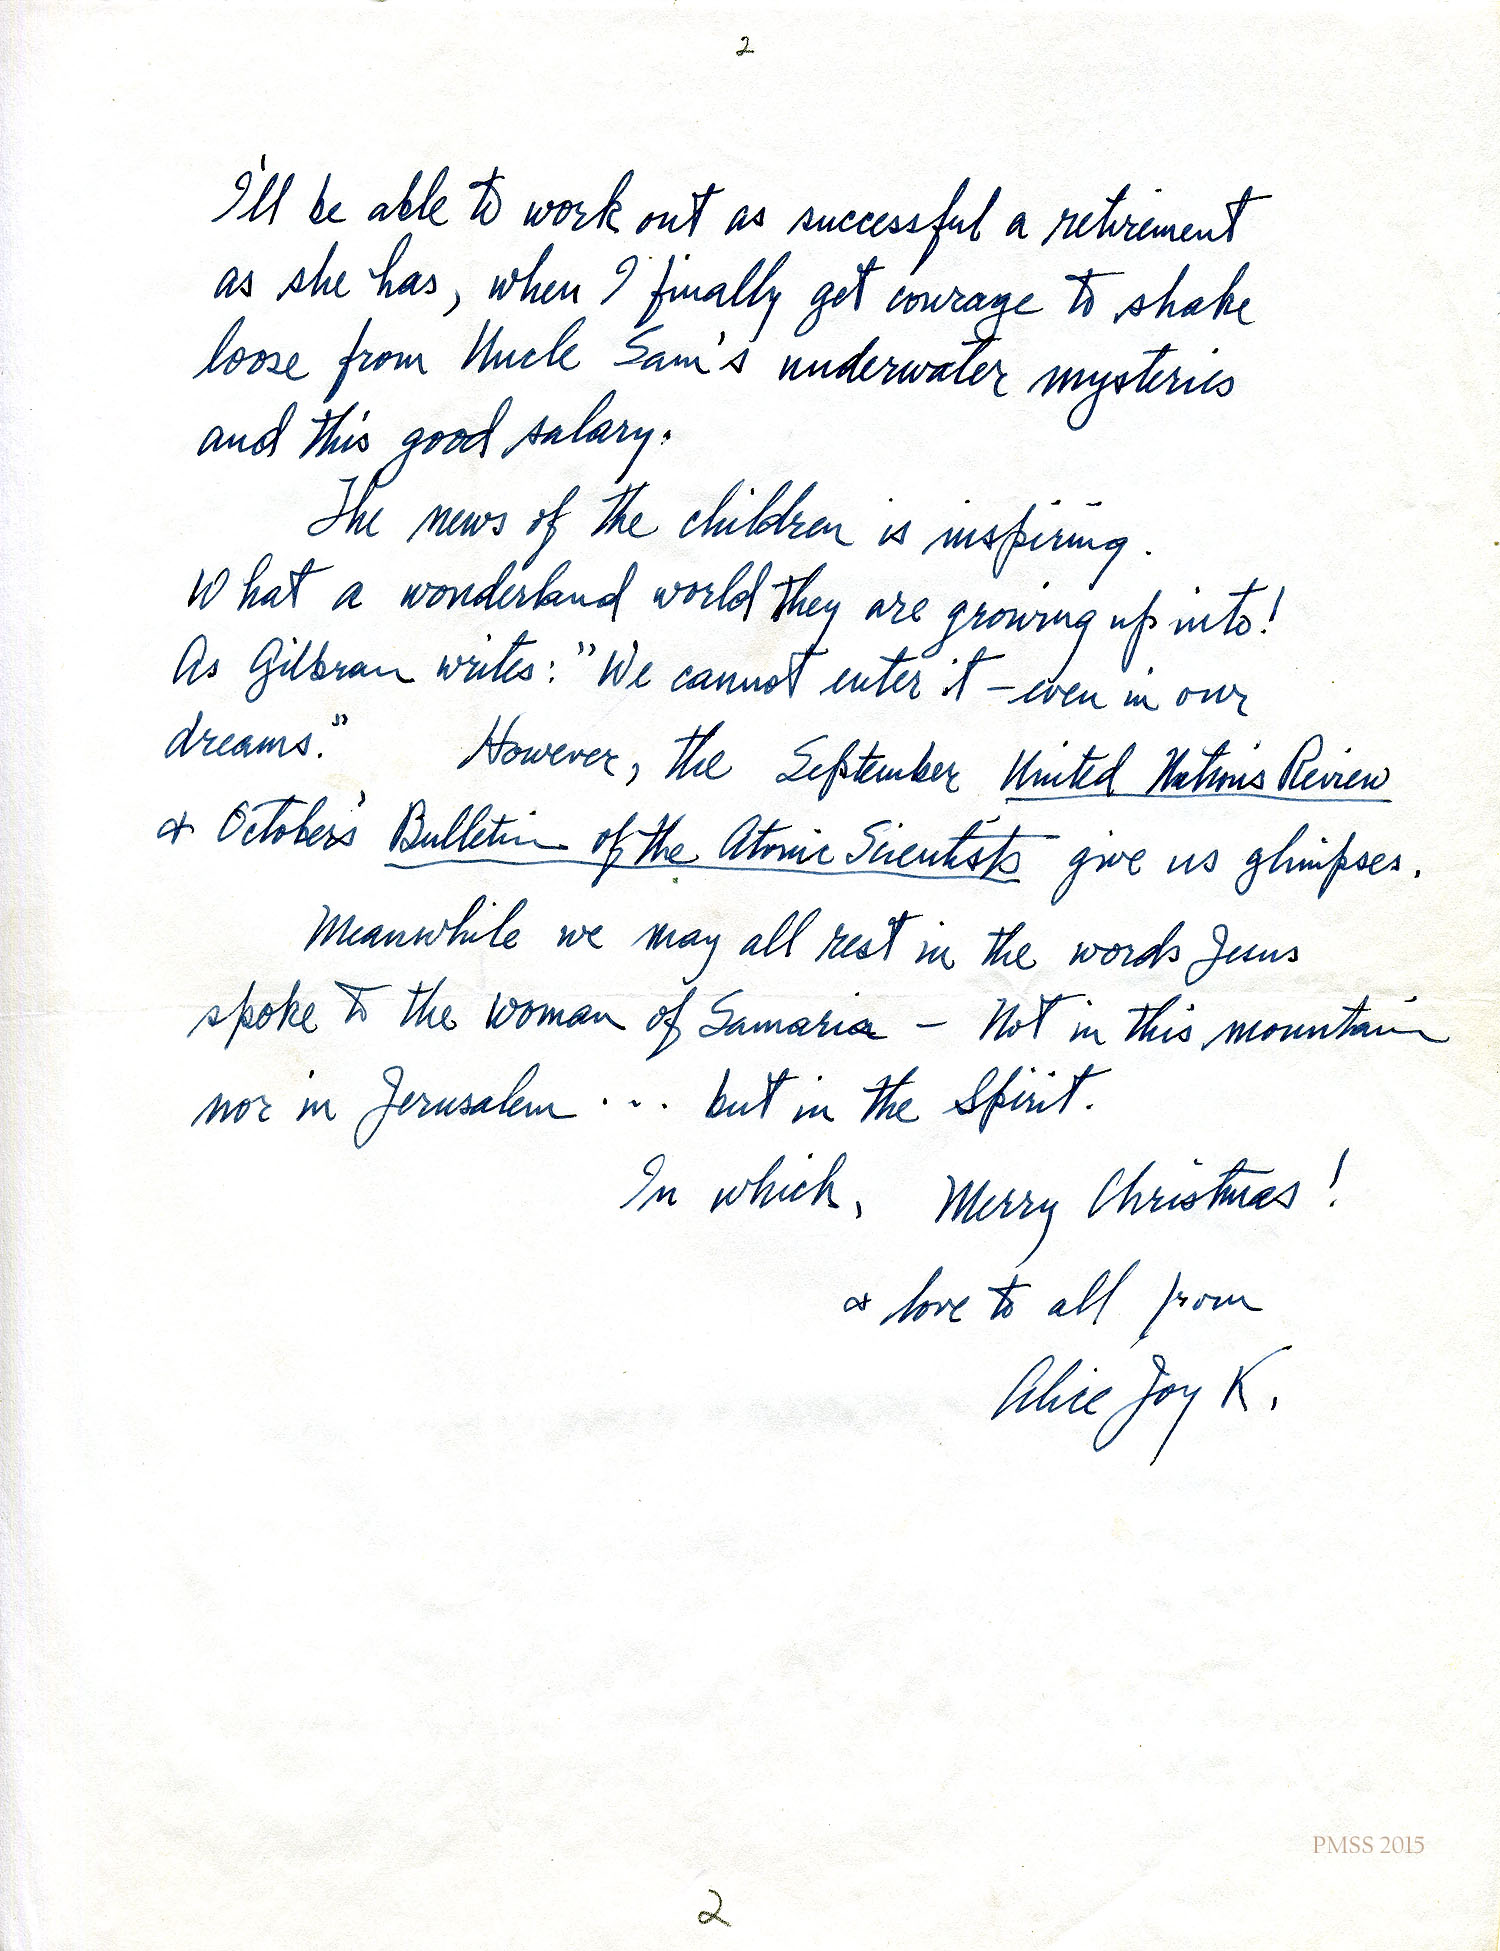 2
I'll be able to work out as successful a retirement
as she has, when I finally get courage to shake
loose from Uncle Sam's underwater mysteries
and this good salary.
The news of the children is inspiring.
What a wonderland world they are growing up into!
As Gilbran writes: "We cannot enter it – even in our
dreams." However, the September United Nations Review
& October's Bulletin of the Atomic Scientists give us glimpses.
Meanwhile we may all rest in the words Jesus
spoke to the woman of Samaria – Not in this mountain
nor in Jerusalem ... but in the Spirit.
In which, Merry Christmas!
& love to all from
Alice Joy K.
PMSS 2015
2